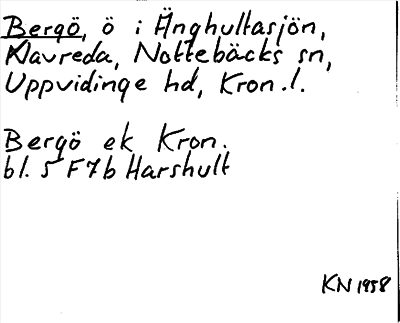 Bergö, ö i Änghultasjön,
Klavreda, Nottebäcks sn,
Uppvidinge hd, Kron. l.
Bergö ek Kron.
bl. 5 F7b Harshult
KN 1958